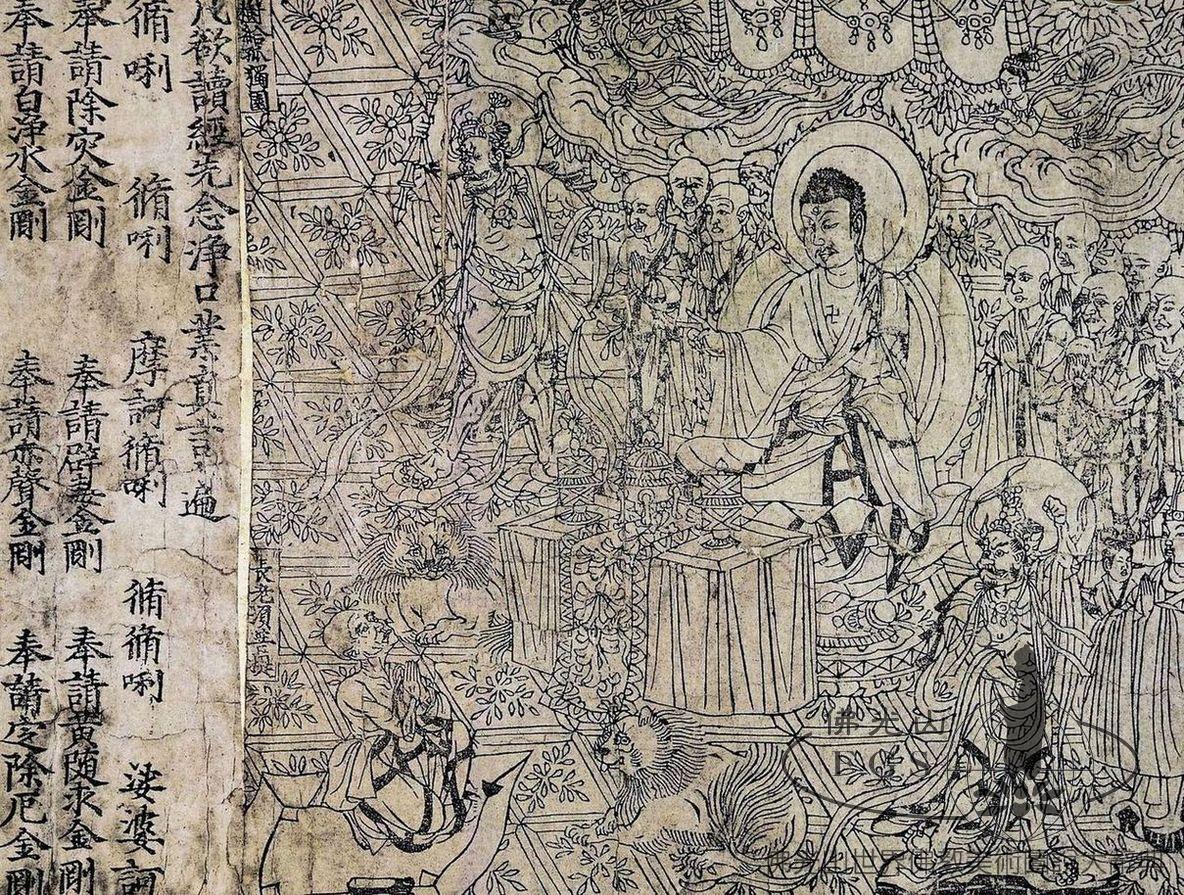 樹給孤獨園
長老須菩提
凡欲讀經先念淨口業真言一遍
脩唎 脩唎 摩訶脩唎 脩脩唎 娑婆訶
奉請除灾金剛 奉請辟毒金剛 奉請黃随求金剛
奉請白淨水金剛 奉請赤聲金剛 奉請定除厄金剛
佛光山
FGS
佛光山世界佛教美術圖說大辭典